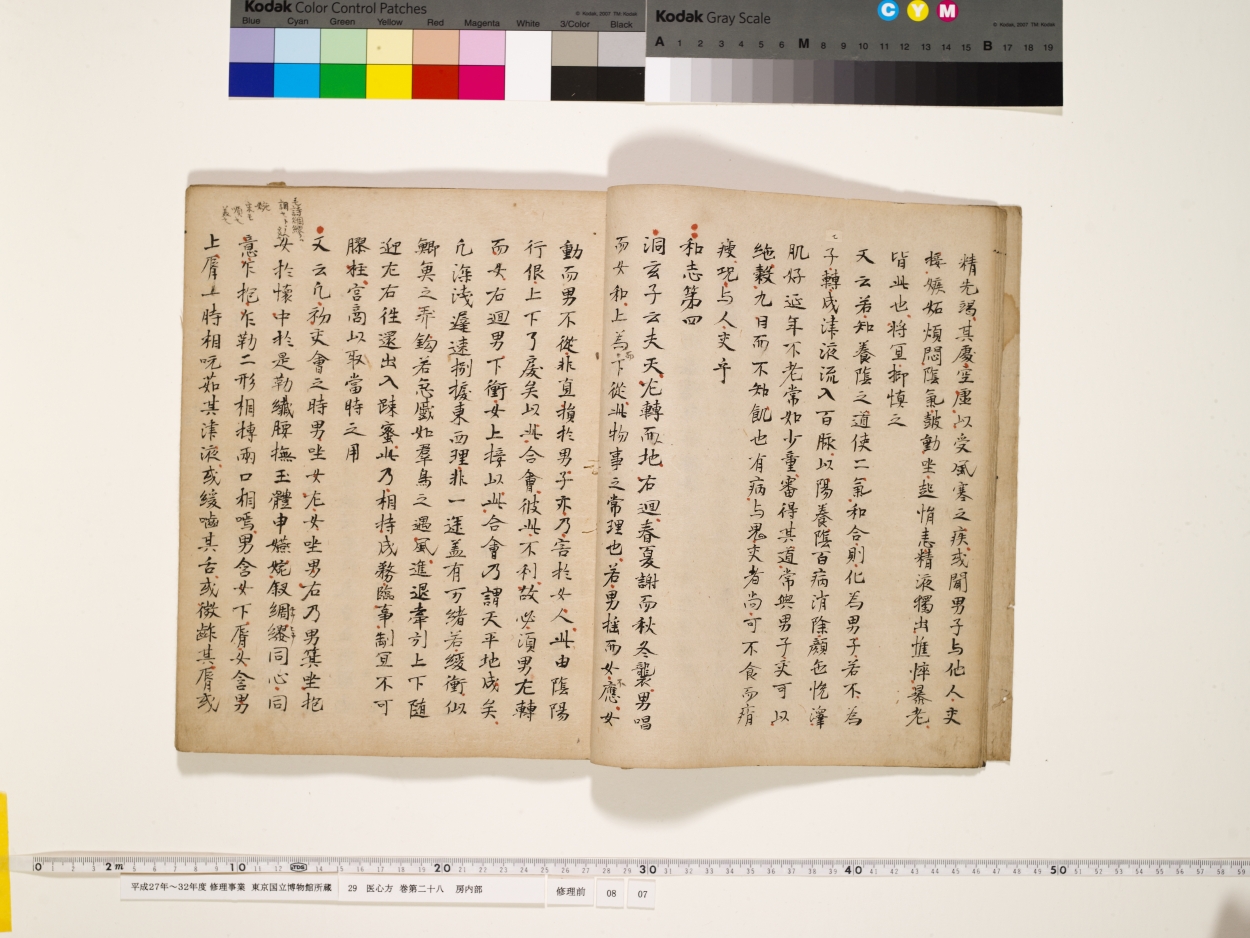 Kodak Color Control Patches
© Kodak, 2007 TM: Kodak
Blue Cyan Green Yellow Red Magenta White 3/Color Black
Kodak Gray Scale
C Y M
© Kodak, 2007 TM: Kodak
A 1 2 3 4 5 6 M 8 9 10 11 12 13 14 15 B 17 18 19
精先竭其處空虛以受風寒之疾或聞男子与他人交
接嫉妬煩悶陰氣鼓動坐起悁恚精液獨出憔悴暴老
皆此也将冝抑慎之
又云若知養陰之道使二氣和合則化為男子若不為
子轉成津液流入百脉以陽養陰百病消除顔色恱澤
肌好延年不老常如少童審得其道常與男子交可以
絶穀九日而不知飢也有病与鬼交者尚可不食而痟
瘦况与人交乎
和志第四
洞玄子云夫天左轉而地右迴春夏謝而秋冬襲男唱
而女和上為而下從此物事之常理也若男揺而女不應女
動而男不從非直損於男子亦乃害於女人此由陰陽
行佷上下了戾矣以此合會彼此不利故必須男左轉
而女右迴男下衝女上接以此合會乃謂天平地成矣
凡深浅遲速捌捩東西理非一途盖有万緒若緩衝似
鯽魚之乖鈎若急蹙如羣鳥之遇風進退牽引上下随
迎左右往還出入踈蜜此乃相持成務臨事制冝不可
膠柱宮商以取當時之用
又云凡初交會之時男坐女左女坐男右乃男箕坐抱
女於懐中於是勒纎腰撫玉體申嬿婉叙綢繆同心同
意乍抱乍勒二形相搏兩口相嗎男含女下脣女含男
上脣一時相吮茹其津液或緩嚙其舌或微齰其脣或
0 2m 10 20 30 40 50
平成27年～32年度 修理事業 東京国立博物館所蔵
29 医心方 巻第二十八 房内部
修理前
08
07